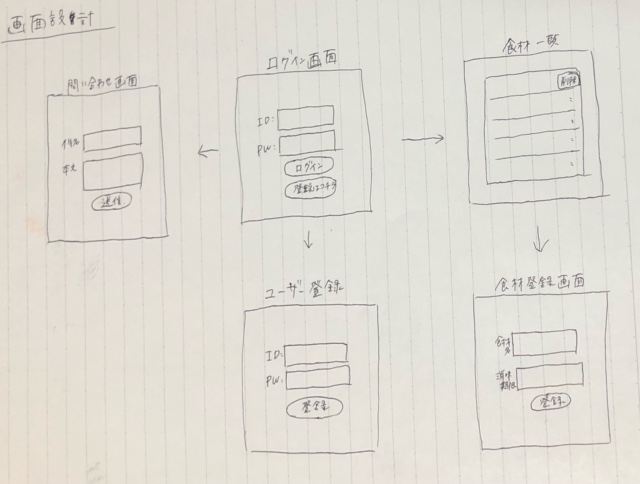 画面設計
問い合わせ画面
件名
本文
送信
ログイン画面
ID:
PW:
ログイン
登録はコチラ
食材一覧
削除
ユーザー登録
ID:
PW:
登録
食材登録画面
食材
名
賞味
期限
登録